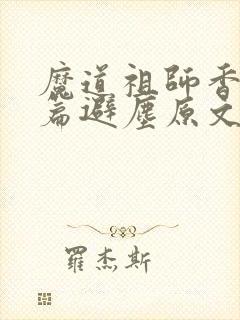 魔道祖師香
篇避塵原文
羅杰斯